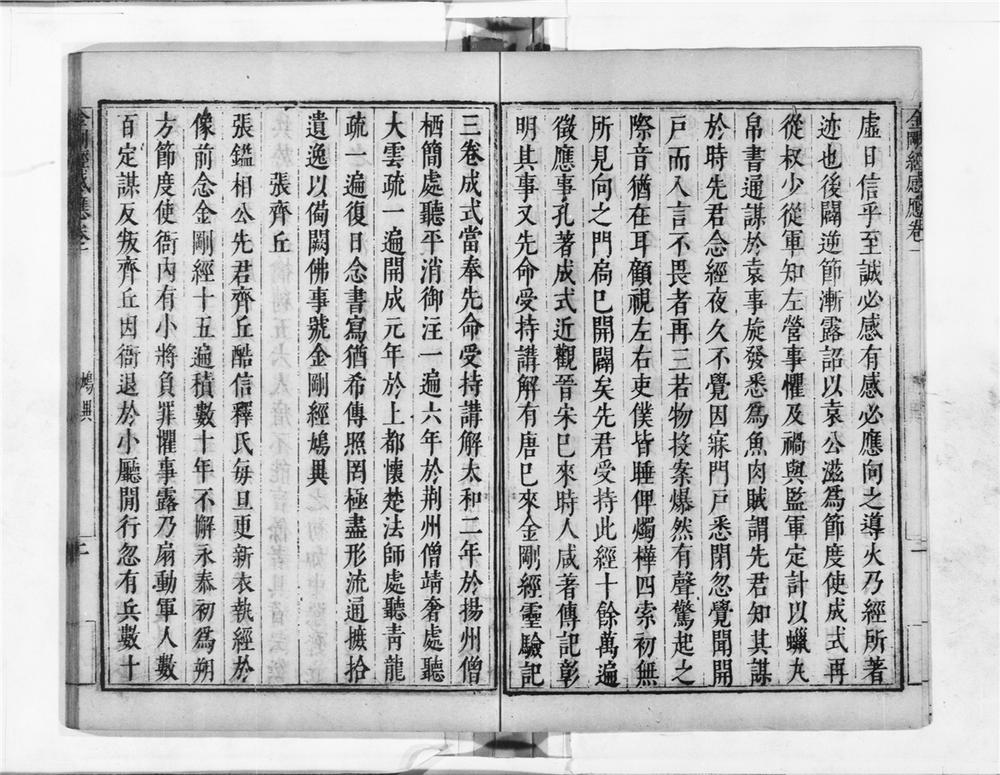 金剛經感應卷一
虛日信乎至誠必感有感必應向之導火乃經所著
迹也後闢逆節漸露詔以袁公滋為節度使成式再
從叔少從軍知左營事懼及禍與監軍定計以蠟丸
帛書通謀於袁事旋發悉為魚肉賊謂先君知其謀
於時先君念經夜久不覺因寐門戶悉閉忽覺聞開
戶而入言不畏者再三若物投案爆然有聲驚起之
際音猶在耳顧視左右吏僕皆睡俾燭樺四索初無
所見向之門扃已開闢矣先君受持此經十餘萬遍
徵應事孔著成式近觀晉宋已來時人咸著傳記彰
明其事又先命受持講解有唐已來金剛經靈驗記
三卷成式當奉先命受持講解太和二年於揚州僧
栖簡處聽平消御注一遍六年於荆州僧靖奢處聽
大雲疏一遍開成元年於上都懷楚法師處聽青龍
疏一遍復日念書寫猶希傳照罔極盡形流通摭拾
遺逸以備闕佛事號金剛經鳩異
張齊丘
張鎰相公先君齊丘酷信釋氏每旦更新衣執經於
像前念金剛經十五遍積數十年不懈永泰初為朔
方節度使衙內有小將負罪懼事露乃扇動軍人數
百定謀反叛齊丘因衙退於小廳閒行忽有兵數十
金剛經感應卷一
鳩異
二